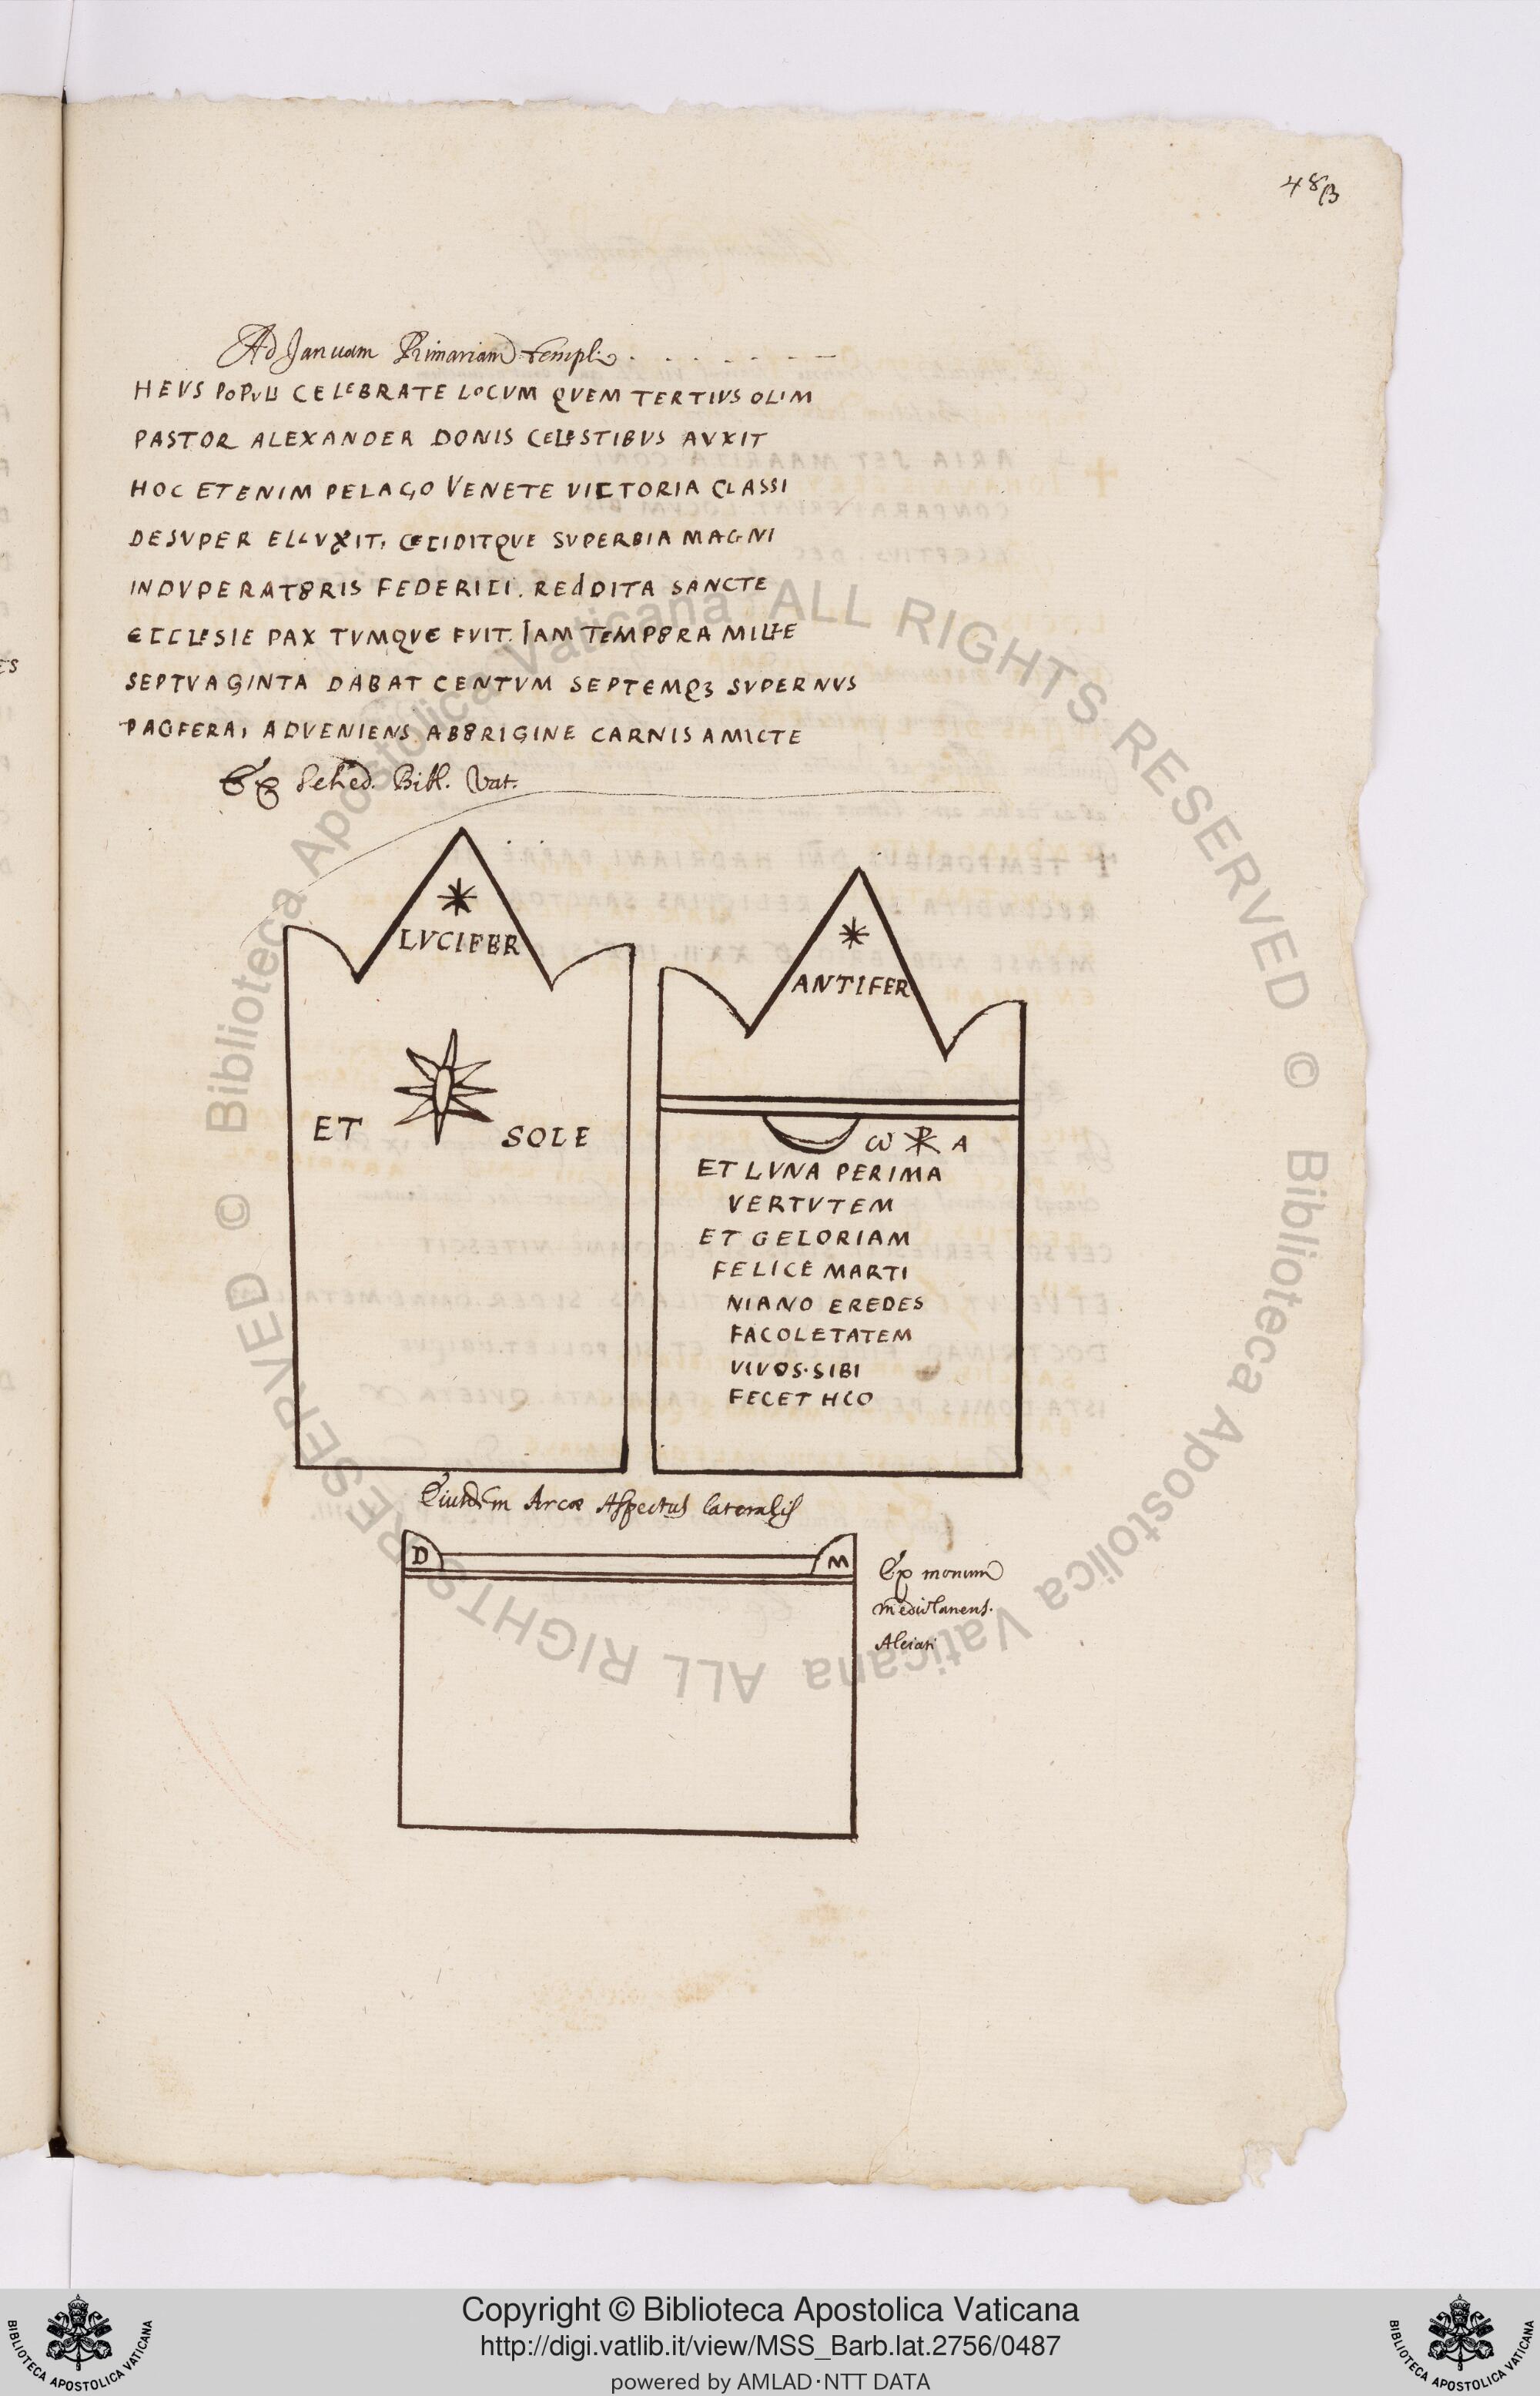 48β
Ad Januam Primariam Templi . . . . . . .
HEVS POPVLI CELEBRATE LOCVM QVEM TERTIVS OLIM
PASTOR ALEXANDER DONIS CELESTIBVS AVXIT
HOC ETENIM PELAGO VENETE VICTORIA CLASSI
DESVPER ELLVXIT, CECIDITQVE SVPERBIA MAGNI
INDVPERATORIS FEDERICI. REdDITA SANCTE
ECCLESIE PAX TVMQVE FVIT. IAM TEMPORA MILLE
SEPTVAGINTA DABAT CENTVM SEPTEMQ3 SVPERNVS
PACFERA, ADVENIENS AB ORIGINE CARNIS AMICTE
Ex Sched. Bibl. Vat.
LVCIFER
ET SOLE
ANTIFER
ω ☧ A
ET LVNA PERIMA
VERTVTEM
ET GELORIAM
FELICE MARTI
NIANO EREDES
FACOLETATEM
VIVOS·SIBI
FECET HCO
Eiusdem Arcæ Aspectus lateralis
D M
Ex monum
mediolanens.
Alciati
© Biblioteca Apostolica Vaticana ALL RIGHTS RESERVED © Biblioteca Apostolica Vaticana ALL RIGHTS RESERVED
Copyright © Biblioteca Apostolica Vaticana
http://digi.vatlib.it/view/MSS_Barb.lat.2756/0487
powered by AMLAD·NTT DATA
BIBLIOTECA APOSTOLICA VATICANA
BIBLIOTECA APOSTOLICA VATICANA